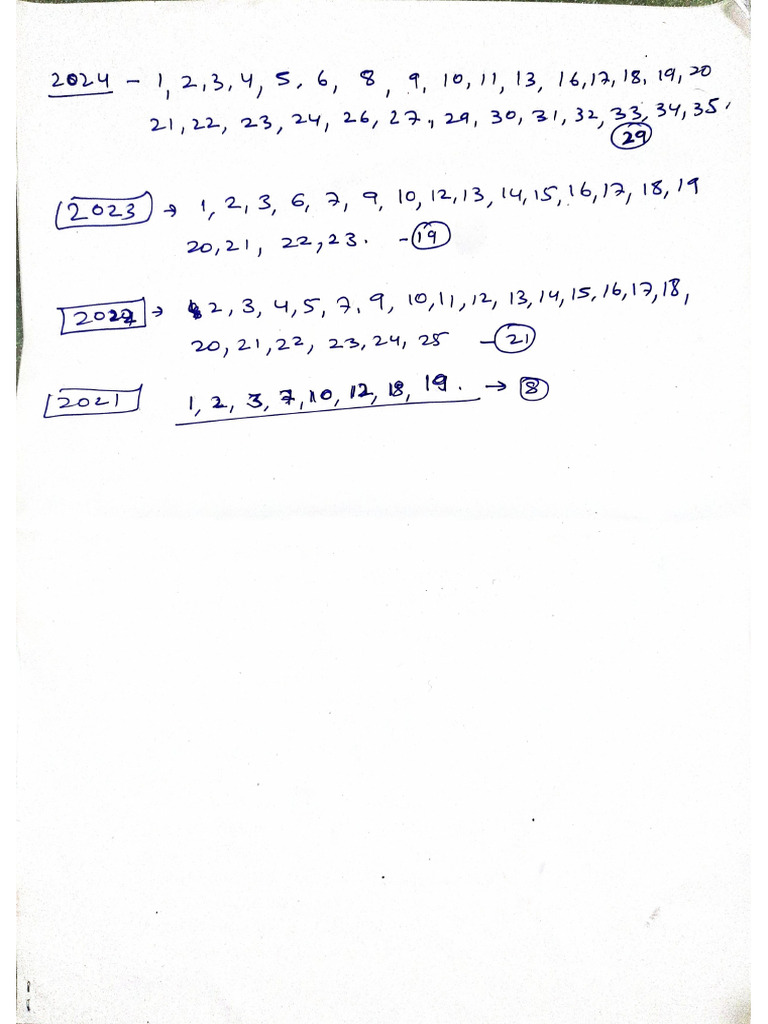 2024 - 1, 2, 3, 4, 5, 6, 8, 9, 10, 11, 13, 16, 17, 18, 19, 20
21, 22, 23, 24, 26, 27, 29, 30, 31, 32, 33, 34, 35.
29
2023 → 1, 2, 3, 6, 7, 9, 10, 12, 13, 14, 15, 16, 17, 18, 19
20, 21, 22, 23. - 19
2022 → 2, 3, 4, 5, 7, 9, 10, 11, 12, 13, 14, 15, 16, 17, 18,
20, 21, 22, 23, 24, 25 - 21
2021 1, 2, 3, 7, 10, 12, 18, 19. → 8